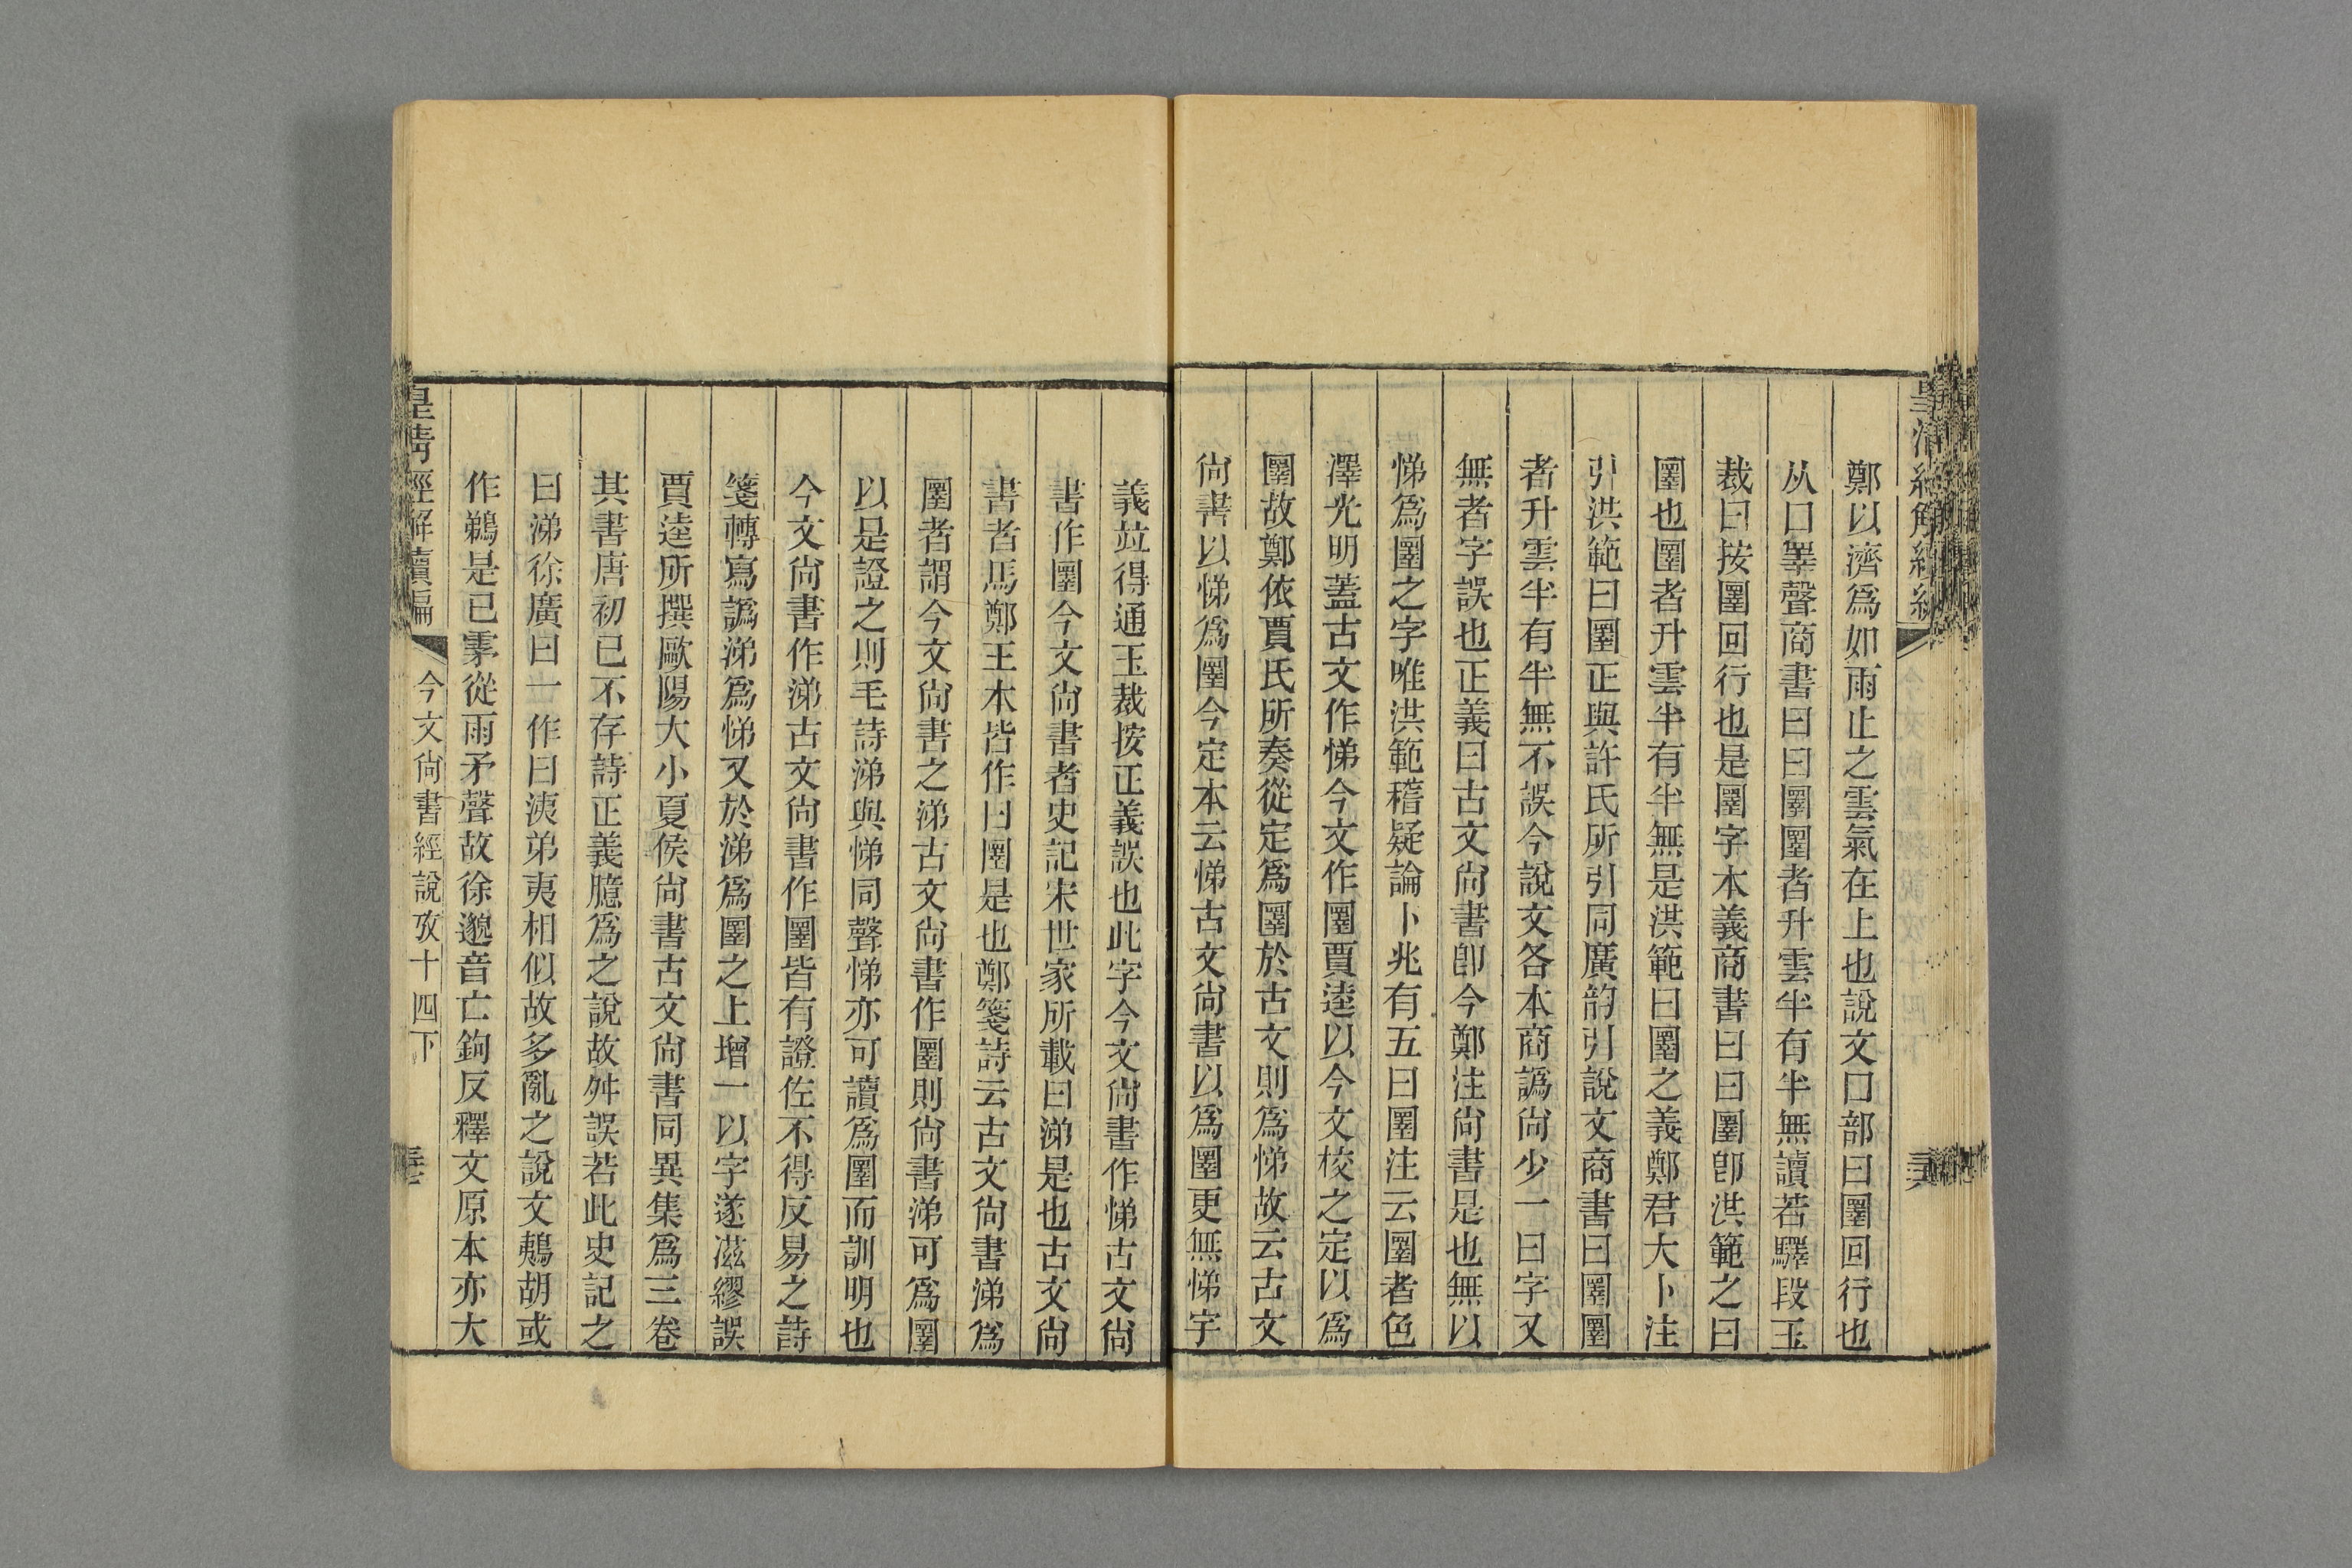 皇清經解續編
鄭以濟爲如雨止之雲氣在上也說文囗部曰圛回行也
从囗睪聲商書曰曰圛圛者升雲半有半無讀若驛段玉
裁曰按圛回行也是圛字本義商書曰曰圛卽洪範之曰
圛也圛者升雲半有半無是洪範曰圛之義鄭君大卜注
引洪範曰圛正與許氏所引同廣韵引說文商書曰圛圛
者升雲半有半無不誤今說文各本商譌尙少一曰字又
無者字誤也正義曰古文尙書卽今鄭注尙書是也無以
悌爲圛之字唯洪範稽疑論卜兆有五曰圛注云圛者色
澤光明蓋古文作悌今文作圛賈逵以今文校之定以爲
圛故鄭依賈氏所奏從定爲圛於古文則爲悌故云古文
尙書以悌爲圛今定本云悌古文尙書以爲圛更無悌字
義竝得通玉裁按正義誤也此字今文尙書作悌古文尙
書作圛今文尙書者史記宋世家所載曰涕是也古文尙
書者馬鄭王本皆作曰圛是也鄭箋詩云古文尙書涕爲
圛者謂今文尙書之涕古文尙書作圛則尙書涕可爲圛
以是證之則毛詩涕與悌同聲悌亦可讀爲圛而訓明也
今文尙書作涕古文尙書作圛皆有證佐不得反易之詩
箋轉寫譌涕爲悌又於涕爲圛之上增一以字遂滋繆誤
賈逵所撰歐陽大小夏侯尙書古文尙書同異集爲三卷
其書唐初已不存詩正義臆爲之說故舛誤若此史記之
曰涕徐廣曰一作曰洟弟夷相似故多亂之說文鶇胡或
作鵜是已雺從雨矛聲故徐邈音亡鉤反釋文原本亦大
皇清經解續編
今文尙書經說攷十四下